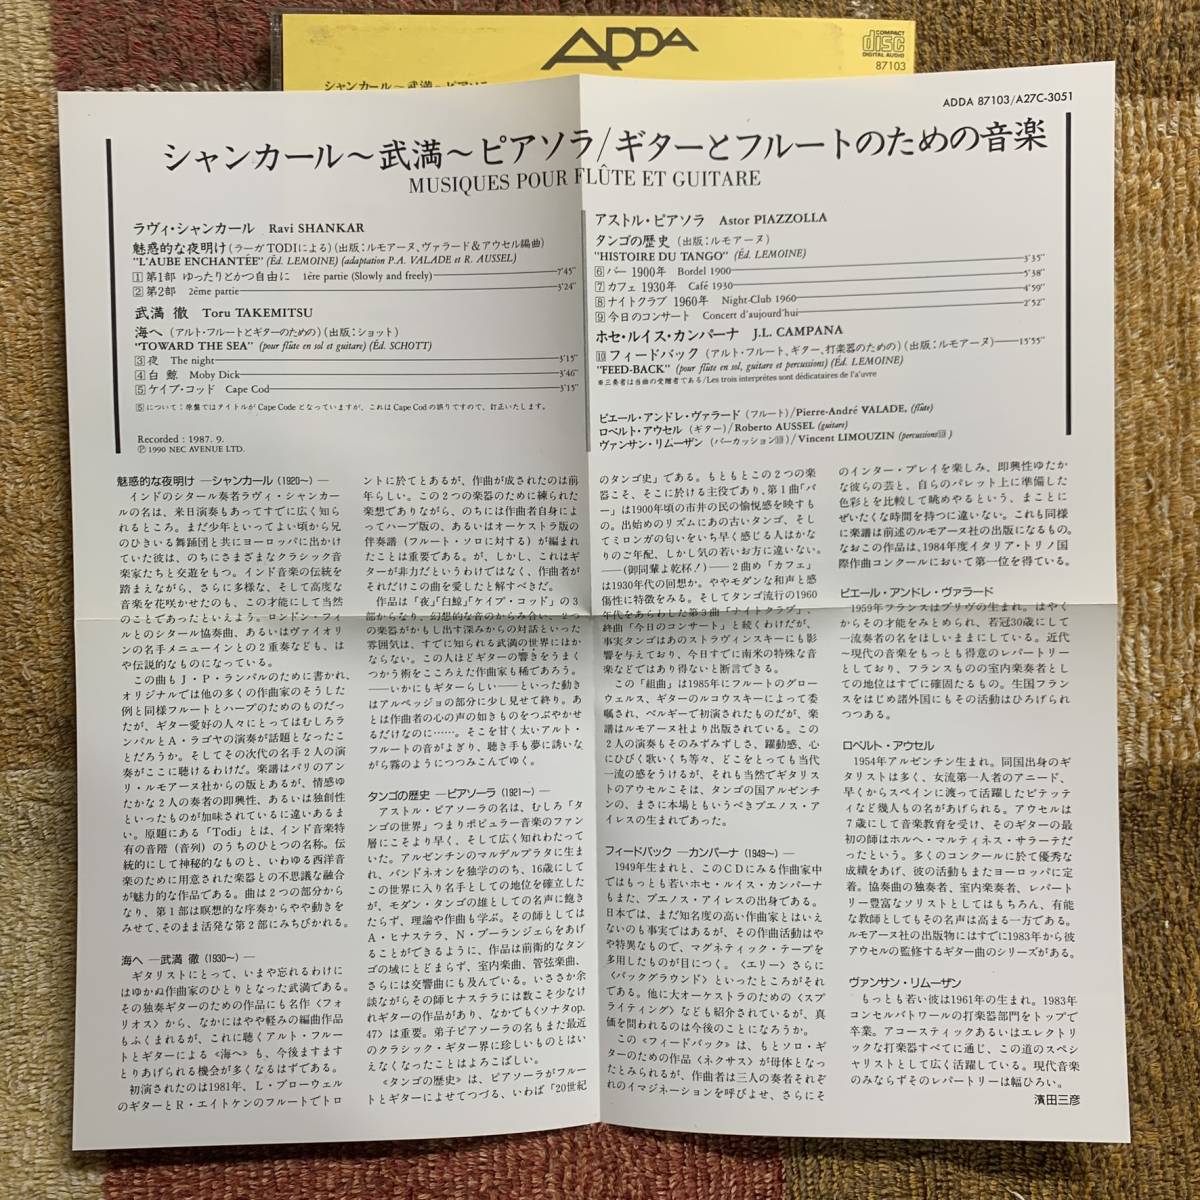 ADDA
COMPACT
disc
DIGITAL AUDIO
87103
シャンカール〜武満〜ピアソラ
ADDA 87103/A27C-3051
シャンカール〜武満〜ピアソラ/ギターとフルートのための音楽
MUSIQUES POUR FLÛTE ET GUITARE
ラヴィ・シャンカール Ravi SHANKAR
魅惑的な夜明け(ラーガTODIによる)(出版:ルモアーヌ、ヴァラード&アウセル編曲)
"L'AUBE ENCHANTÉE" (Éd. LEMOINE) (adaptation P.A. VALADE et R. AUSSEL)
1 第1部 ゆったりとかつ自由に 1ére partie (Slowly and freely) 7'45"
2 第2部 2éme partie 3'24"
武満 徹 Toru TAKEMITSU
海へ(アルト・フルートとギターのための)(出版:ショット)
"TOWARD THE SEA" (pour flûte en sol et guitare) (Éd. SCHOTT)
3 夜 The night 3'15"
4 白 鯨 Moby Dick 3'46"
5 ケイプ・コッド Cape Cod 3'15"
5 について:原盤ではタイトルが Cape Code となっていますが、これは Cape Cod の誤りですので、訂正いたします。
Recorded : 1987. 9.
Ⓟ 1990 NEC AVENUE LTD.
アストル・ピアソラ Astor PIAZZOLLA
タンゴの歴史(出版:ルモアーヌ)
"HISTOIRE DU TANGO" (Éd. LEMOINE)
6 バー 1900年 Bordel 1900 3'35"
7 カフェ 1930年 Café 1930 5'38"
8 ナイトクラブ 1960年 Night-Club 1960 4'59"
9 今日のコンサート Concert d'aujourd'hui 2'52"
ホセ・ルイス・カンパーナ J.L. CAMPANA
10 フィードバック(アルト・フルート、ギター、打楽器のための)(出版:ルモアーヌ) 15'55"
"FEED-BACK" (pour flûte en sol, guitare et percussions) (Éd. LEMOINE)
※三奏者は当曲の受贈者である/Les trois interprètes sont dédicataires de l'a'uvre
ピエール・アンドレ・ヴァラード(フルート)/Pierre-André VALADE, (flûte)
ロベルト・アウセル(ギター)/Roberto AUSSEL (guitare)
ヴァンサン・リムーザン(パーカッション10)/Vincent LIMOUZIN (percussions10)
魅惑的な夜明け ―シャンカール(1920〜)―
インドのシタール奏者ラヴィ・シャンカー
ルの名は、来日演奏もあってすでに広く知ら
れるところ。まだ少年といってよい頃から兄
のひきいる舞踊団と共にヨーロッパに出かけ
ていた彼は、のちにさまざまなクラシック音
楽家たちと交遊をもつ。インド音楽の伝統を
踏まえながら、さらに多様な、そして高度な
音楽を花咲かせたのも、この才能にして当然
のことであったといえよう。ロンドン・フィ
ルとのシタール協奏曲、あるいはヴァイオリ
ンの名手メニューインとの2重奏なども、は
や伝説的なものになっている。
この曲もJ・P・ランパルのために書かれ、
オリジナルでは他の多くの作曲家のそうした
例と同様フルートとハープのためのものだっ
たが、ギター愛好の人々にとってはむしろラ
ンパルとA・ラゴヤの演奏が話題となったこ
とだろうか。そしてその次代の名手2人の演
奏がここに聴けるわけだ。楽譜はパリのアン
リ・ルモアーヌ社からの版とあるが、情感ゆ
たかな2人の奏者の即興性、あるいは独創性
といったものが加味されているに違いあるま
い。原題にある「Todi」とは、インド音楽特
有の音階(音列)のうちのひとつの名称。伝
統的にして神秘的なものと、いわゆる西洋音
楽のために用意された楽器との不思議な融合
が魅力的な作品である。曲は2つの部分から
なり、第1部は瞑想的な序奏からやや動きを
みせて、そのまま活発な第2部にみちびかれる。
海へ ―武満 徹(1930〜)―
ギタリストにとって、いまや忘れるわけに
はゆかぬ作曲家のひとりとなった武満である。
その独奏ギターのための作品にも名作〈フォ
リオス〉から、なかにはやや軽みの編曲作品
もふくまれるが、これに聴くアルト・フルー
トとギターによる《海へ》も、今後ますます
とりあげられる機会が多くなるはずである。
初演されたのは1981年、L・ブローウェル
のギターとR・エイトケンのフルートでトロ
ントに於てとあるが、作曲が成されたのは前
年らしい。この2つの楽器のために練られた
楽想でありながら、のちには作曲者自身によ
ってハープ版の、あるいはオーケストラ版の
伴奏譜(フルート・ソロに対する)が編まれ
たことは重要である。が、しかし、これはギ
ターが非力だというわけではなく、作曲者が
それだけこの曲を愛したと解すべきだ。
作品は「夜」「白鯨」「ケイプ・コッド」の3
部からなり、幻想的な音のからみ合い、2つ
の楽器がかもし出す深みからの対話といった
雰囲気は、すでに知られる武満の世界にほか
ならない。この人ほどギターの響きをうまく
つかう術をこころえた作曲家も稀であろう。
――いかにもギターらしい――といった動き
はアルペッジョの部分に少し見せて終り。あ
とは作曲者の心の声の如きものをつぶやかせ
るだけなのに……。そこを甘く太いアルト・
フルートの音がよぎり、聴き手も夢に誘いな
がら霧のようにつつみこんでゆく。
タンゴの歴史 ―ピアソーラ(1921〜)―
アストル・ピアソーラの名は、むしろ「タ
ンゴの世界」つまりポピュラー音楽のファン
層にこそより早く、そして広く知れわたって
いた。アルゼンチンのマルデルプラタに生ま
れ、バンドネオンを独学ののち、16歳にして
この世界に入り名手としての地位を確立した
が、モダン・タンゴの雄としての名声に飽き
たらず、理論や作曲も学ぶ。その師としては
A・ヒナステラ、N・ブーランジェらをあげ
ることができるように、作品は前衛的なタン
ゴの域にとどまらず、室内楽曲、管弦楽曲、
さらには交響曲にも及んでいる。いささか余
談ながらその師ヒナステラには数こそ少なけ
れギターの作品があり、なかでも〈ソナタop.
47〉は重要。弟子ピアソーラの名もまた最近
のクラシック・ギター界に珍しいものとはい
えなくなったことはよろこばしい。
《タンゴの歴史》は、ピアソーラがフルー
トとギターによせてつづる、いわば「20世紀
のタンゴ史」である。もともとこの2つの楽
器こそ、そこに於ける主役であり、第1曲「バ
ー」は1900年頃の市井の民の愉悦感を映すも
の。出始めのリズムにあの古いタンゴ、そし
てミロンガの匂いをいち早く感じる人はかな
りのご年配、しかし気の若いお方に違いない。
――(御同輩よ乾杯!)―― 2曲め「カフェ」
は1930年代の回想か。ややモダンな和声と感
傷性に特徴をみる。そしてタンゴ流行の1960
年代をあらわした第3曲「ナイトクラブ」、
終曲「今日のコンサート」と続くわけだが、
事実タンゴはあのストラヴィンスキーにも影
響を与えており、今日すでに南米の特殊な音
楽などではあり得ないと断言できる。
この「組曲」は1985年にフルートのグロー
ウェルス、ギターのルコウスキーによって委
嘱され、ベルギーで初演されたものだが、楽
譜はルモアーヌ社より出版されている。この
2人の演奏もそのみずみずしさ、躍動感、心
にひびく歌いくち等々、どこをとっても当代
一流の感をうけるが、それも当然でギタリス
トのアウセルこそは、タンゴの国アルゼンチ
ンの、まさに本場ともいうべきブエノス・ア
イレスの生まれであった。
フィードバック ―カンパーナ(1949〜)―
1949年生まれと、このCDにみる作曲家中
ではもっとも若いホセ・ルイス・カンパーナ
もまた、ブエノス・アイレスの出身である。
日本では、まだ知名度の高い作曲家とはいえ
ないのも事実ではあるが、その作曲活動はや
や特異なもので、マグネティック・テープを
多用したものが目につく。〈エリー〉さらに
〈バックグラウンド〉といったところがそれ
である。他に大オーケストラのための〈スプ
ライティング〉なども紹介されているが、真
価を問われるのは今後のことになろうか。
この《フィードバック》は、もとソロ・ギ
ターのための作品〈ネクサス〉が母体となっ
たとみられるが、作曲者は三人の奏者それぞ
れのイマジネーションを呼びよせ、さらにそ
のインター・プレイを楽しみ、即興性ゆたか
な彼らの芸と、自らのパレット上に準備した
色彩とを比較して眺めやるという、まことに
ぜいたくな時間を持つに違いない。これも同様
に楽譜は前述のルモアーヌ社の出版になるもの。
なおこの作品は、1984年度イタリア・トリノ国
際作曲コンクールにおいて第一位を得ている。
ピエール・アンドレ・ヴァラード
1959年フランスはブリヴの生まれ。はやく
からその才能をみとめられ、若冠30歳にして
一流奏者の名をほしいままにしている。近代
〜現代の音楽をもっとも得意のレパートリー
としており、フランスものの室内楽奏者とし
ての地位はすでに確固たるもの。生国フラン
スをはじめ諸外国にもその活動はひろげられ
つつある。
ロベルト・アウセル
1954年アルゼンチン生まれ。同国出身のギ
タリストは多く、女流第一人者のアニード、
早くからスペインに渡って活躍したピテッテ
ィなど幾人もの名があげられる。アウセルは
7歳にして音楽教育を受け、そのギターの最
初の師はホルヘ・マルティネス・サラーテだ
ったという。多くのコンクールに於て優秀な
成績をあげ、彼の活動もまたヨーロッパに定
着。協奏曲の独奏者、室内楽奏者、レパート
リー豊富なソリストとしてはもちろん、有能
な教師としてもその名声は高まる一方である。
ルモアーヌ社の出版物にはすでに1983年から彼
アウセルの監修するギター曲のシリーズがある。
ヴァンサン・リムーザン
もっとも若い彼は1961年の生まれ。1983年
コンセルバトワールの打楽器部門をトップで
卒業。アコースティックあるいはエレクトリ
ックな打楽器すべてに通じ、この道のスペシ
ャリストとして広く活躍している。現代音楽
のみならずそのレパートリーは幅ひろい。
濱田三彦